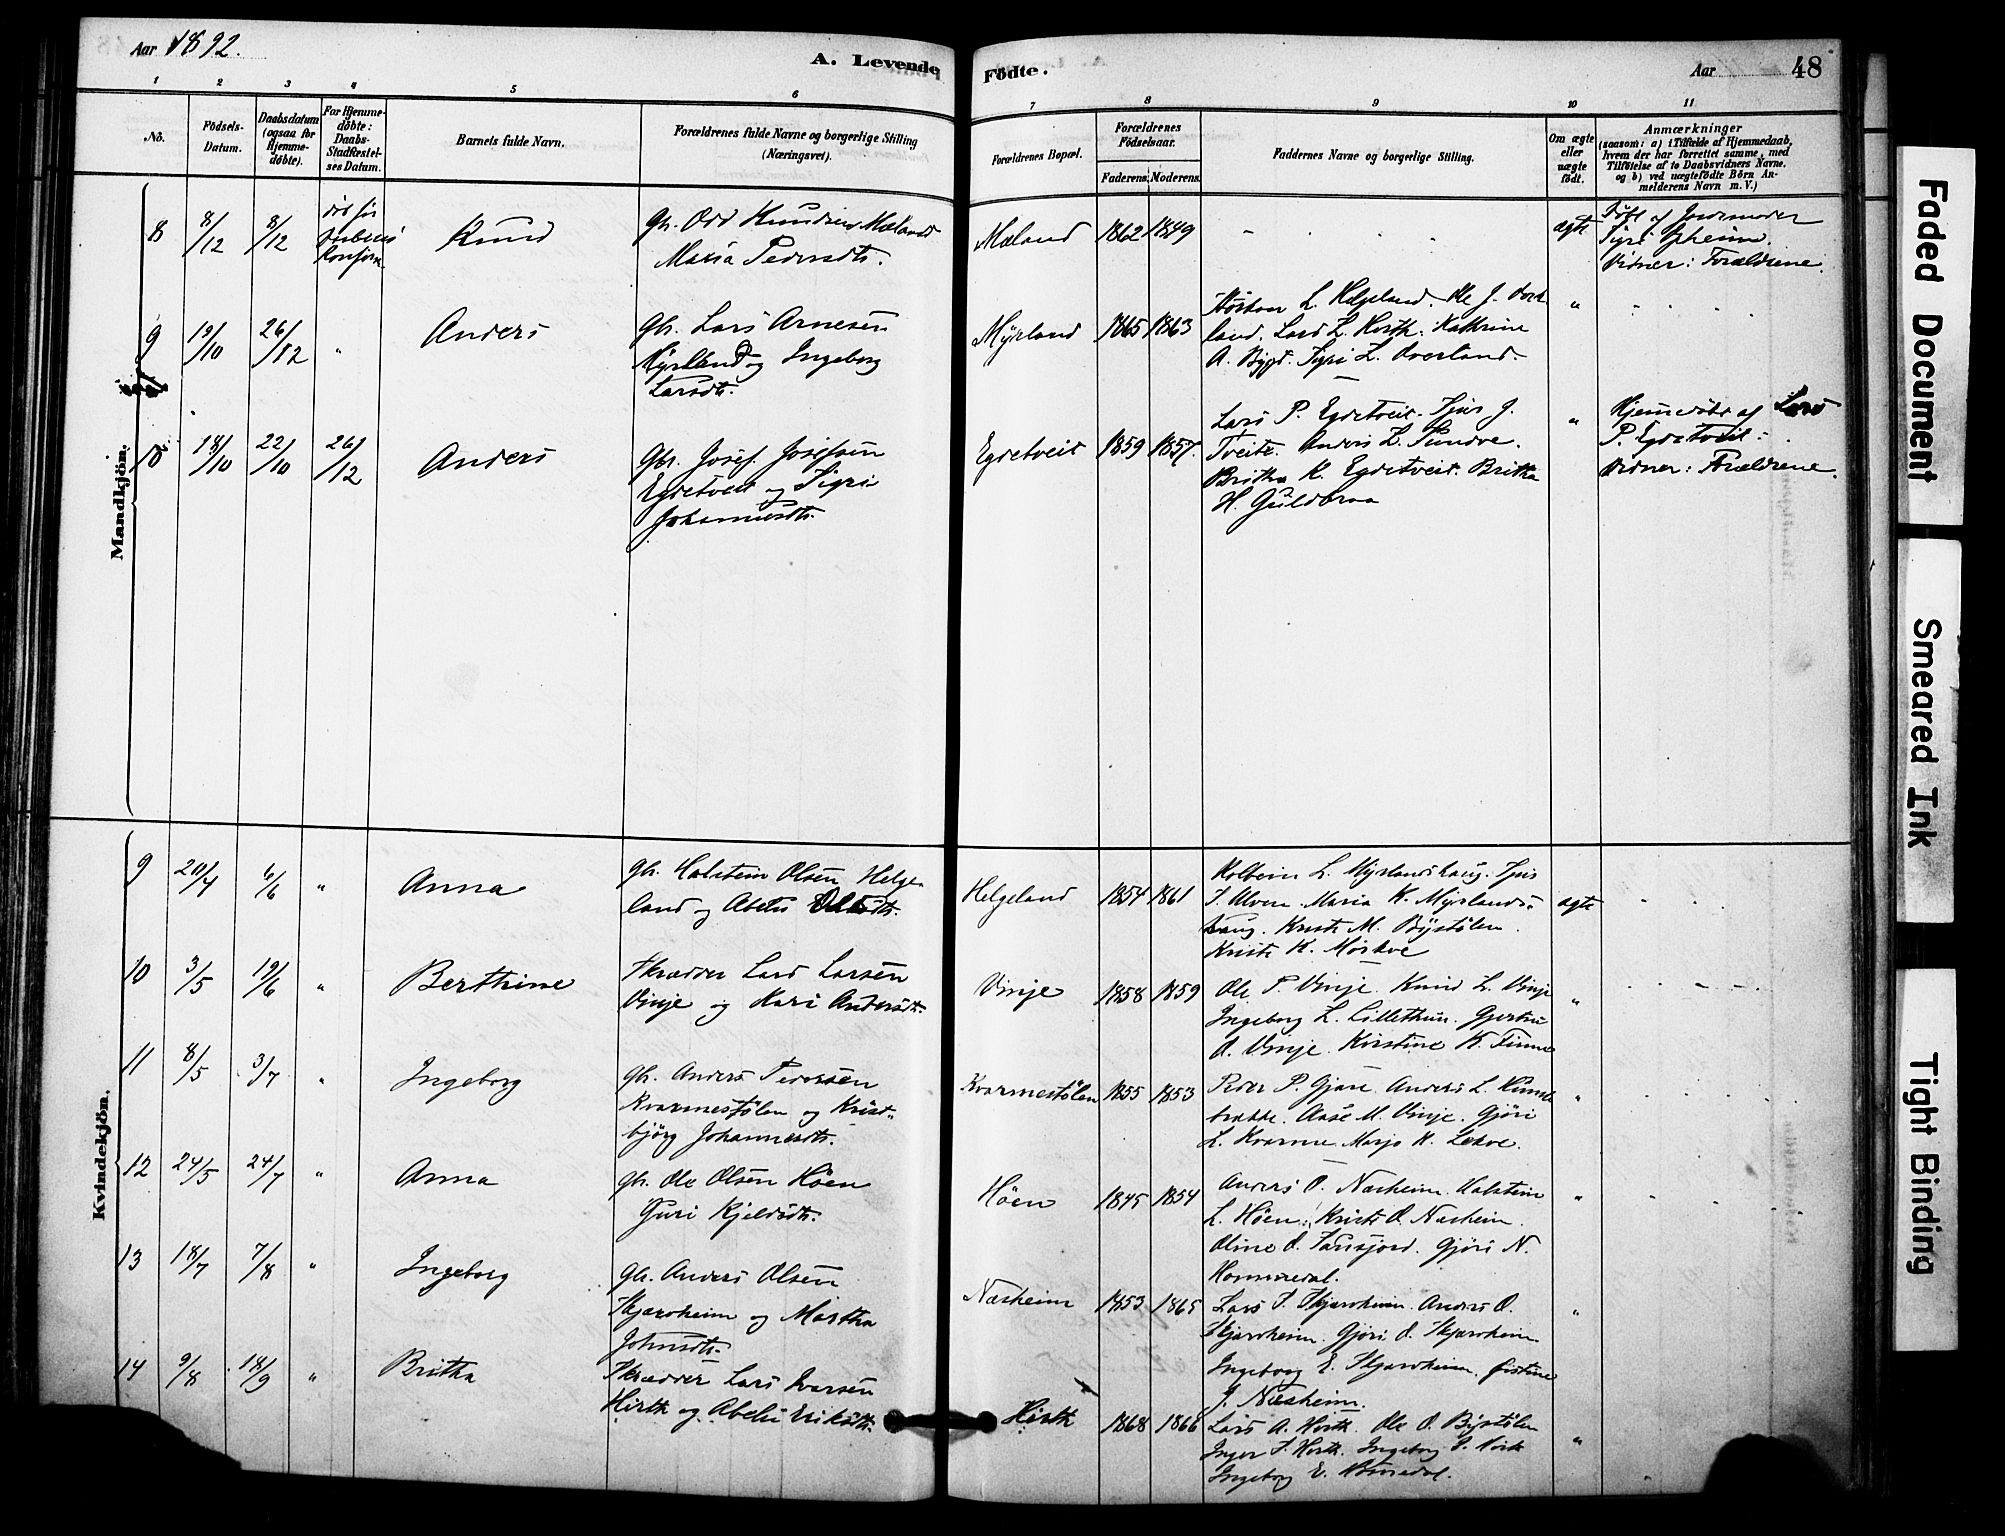 Aar 1892.
A. Levende
Födte.
Aar
48
1 2 3 4 5 6
7 8 9 10 11
No.
Födsels-
Datum.
Daabsdatum
(ogsaa for
Hjemme-
döbte).
For Hjemme-
döbte:
Daabs-
Stadfæstel-
ses Datum.
Barnets fulde Navn.
Forældrenes fulde Navne og borgerlige Stilling
(Næringsvei).
Forældrenes Bopæl.
Forældrenes
Födselsaar.
Faderens. Moderens.
Faddernes Navne og borgerlige Stilling.
Om ægte
eller
uægte
födt.
Anmærkninger
(saasom: a) i Tilfælde af Hjemmedaab,
hvem der har forrettet samme, med
Tilföielse af to Daabsvidners Navne.
og b) ved uægtefödte Börn An-
melderens Navn m. V.)
Mandkjön.
8 8/12 8/12
Knud
Gbr. Odd Knudsen Mæland
Maria Pedersdtr.
Mæland 1862 1849
ægte
Döbt af Jordemoder
Vidner: Forældrene.
9 19/10 26/12 "
Anders
Gbr. Lars Arnesen
Myrland og Ingeborg
Larsdtr.
Myrland 1865 1863
L. Helgeland. Ole J.
land. Lars L. Hirth. Kathrine
A. Bygd. Sygni L. Överland.
"
10 18/10 22/10 26/12
Anders
Gbr. Josef Josefsen
Egdetveit og Sigri
Johannesdtr.
Egdetveit 1859 1857.
Lars P. Egdetveit. Sjur J.
Tveite. Anders L. Sundve.
Britha K. Egdetveit. Britha
H. Guldbraa
"
Hjemmedöbt af Lars
P. Egdetveit:
Vidner: Forældrene.
Kvindekjön.
9 20/4 6/6 "
Anna
Gbr. Halstein Olsen Helge-
land og Abelu Olsdtr.
Helgeland 1854 1861
Kolbein L. Myrlandshaug. Sjur
S. Ulven. Maria K. Myrlands-
haug. Kristi M. Böstölen.
Kristi K. Mörkve
ægte
10 3/5 19/6 "
Berthine
Skrædder Lars Larsen
Vinje og Kari Andersdtr.
Vinje 1858 1859
Ole P. Vinje. Knud L. Vinje
Ingeborg L. Lillethun. Gjertru
O. Vinje. Kirstine K. Finne
"
11 8/5 3/7 "
Ingeborg
Gbr. Anders Pedersen
Kvarmestölen og Krist-
björg Johannesdtr.
Kvarmestölen 1855 1853
Peder P. Gjære. Anders L.
brække. Aase M. Vinje. Gjöri
L. Kvarme Marjo K. Lekve.
"
12 24/5 24/7 "
Anna
Gbr. Ole Olsen Höen
Guri Kjeldsdtr.
Höen 1845 1854
Anders O. Næsheim. Halstein
L. Höen. Kristi O. Næsheim.
Oline O. Gjöri N.
Hommedal.
"
13 18/7 7/8 "
Ingeborg
Gbr. Anders Olsen
Skjærvheim og Martha
Johnsdtr.
Næsheim 1853 1865
Lars S. Skjærvheim. Anders O.
Skjærvheim. Gjöri O. Skjærvheim
Ingeborg E. Skjærvheim.
J. Næsheim.
"
14 9/8 18/9 "
Britha
Skrædder Lars Ivarsen
Hirth og Abelu Eriksdtr.
Hirth 1868 1866
Lars A. Hirth. Ole O. Böstölen
Inger S. Hirth. Ingeborg
Ingeborg E.
"
Faded Document
Smeared Ink
Tight Binding